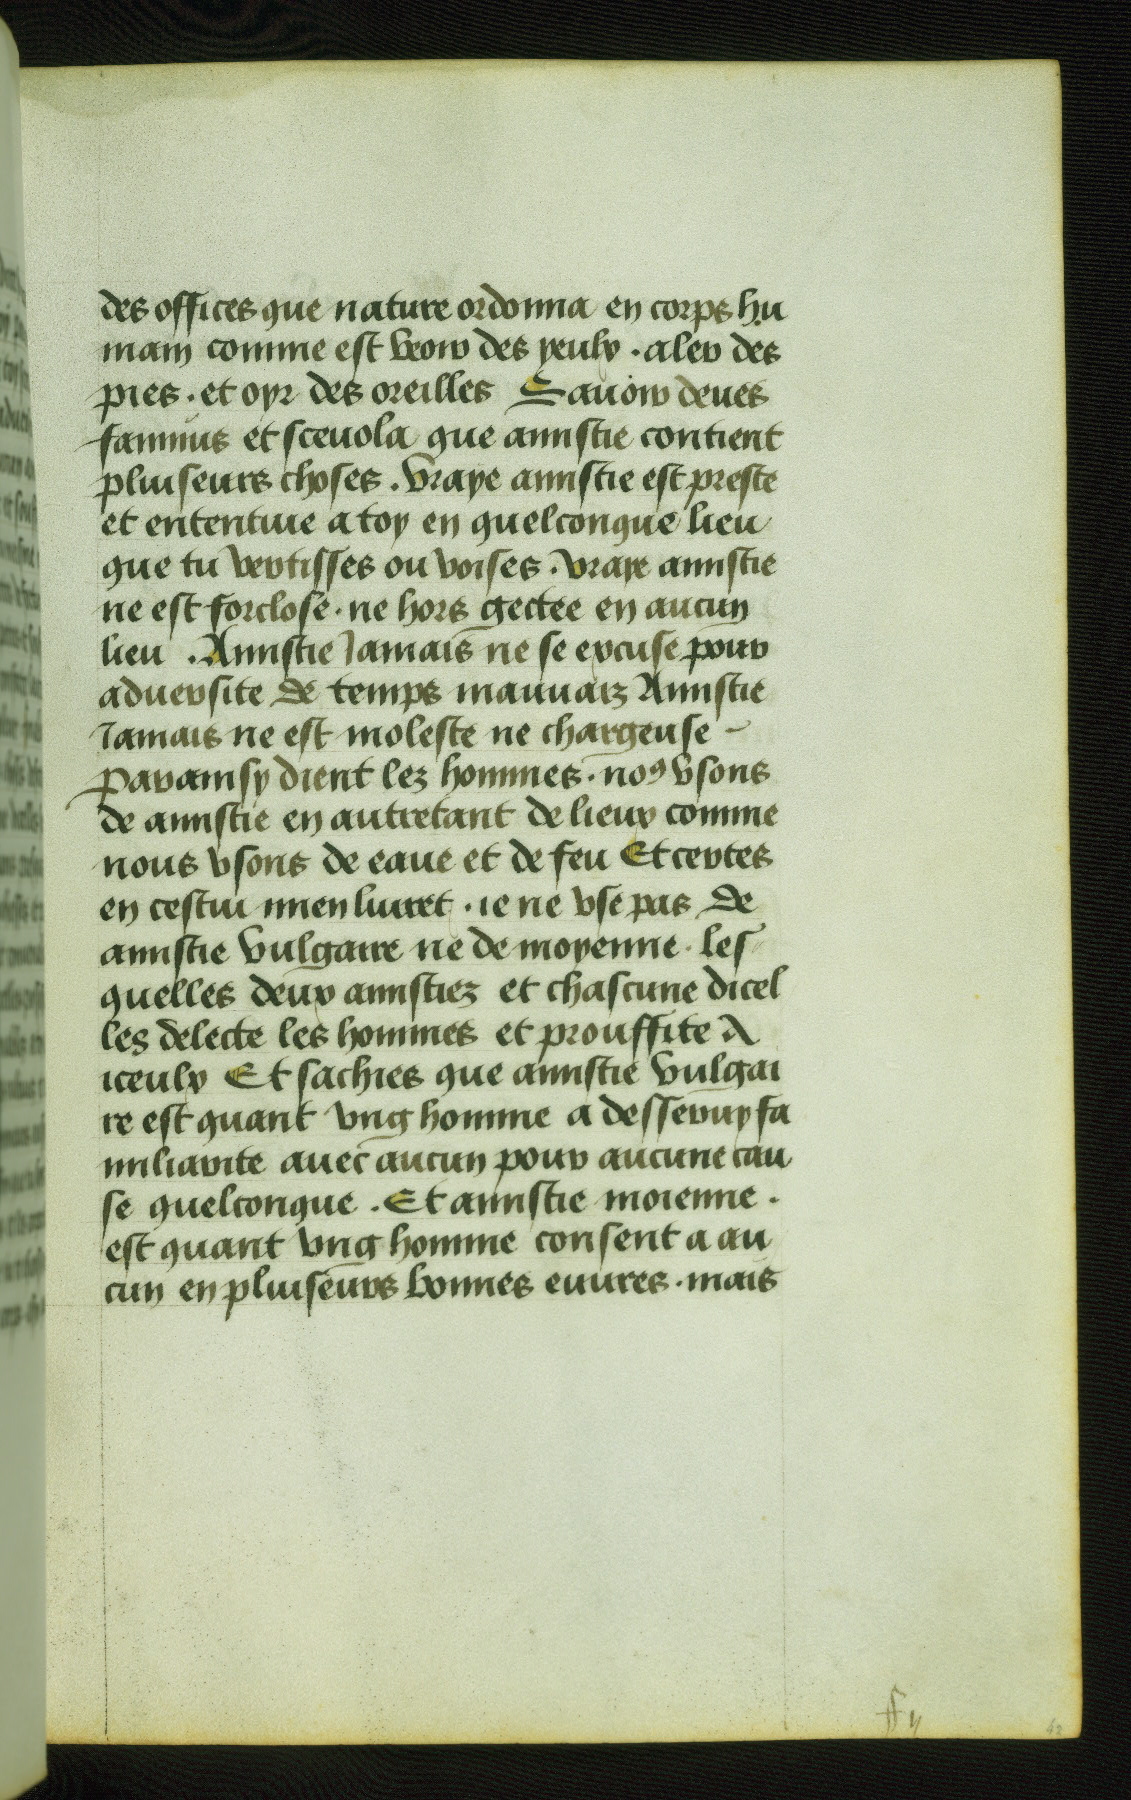 des offices que nature ordonna en corps hu
main comme est veoir des yeulx . aler des
pies . et oyr des oreilles Sauoir deues
fannius et sceuola que amistie contient
pluiseurs choses . Vraye amistie est preste
et ententiue a toy en quelconque lieu
que tu vertisses ou voises . vraye amistie
ne est forclose . ne hors gectee en aucun
lieu . Amistie Jamais ne se excuse pour
aduersite de temps mauuaiz Amistie
Jamais ne est moleste ne chargeuse -
Par ainsy dient lez hommes . noꝰ vsons
de amistie en autretant de lieux comme
nous vsons de eaue et de feu Et certes
en cestui mien liuret . ie ne vse pas de
amistie vulgaire ne de moyenne . les
quelles deux amistiez et chascune dicel
les delecte les hommes et prouffite A
iceulx Et sachies que amistie vulgai
re est quant vng homme a desseruy fa
miliarite auec aucun pour aucune cau
se quelconque . Et amistie moienne .
est quant vng homme consent a au
cun en pluiseurs bonnes euures . mais
62